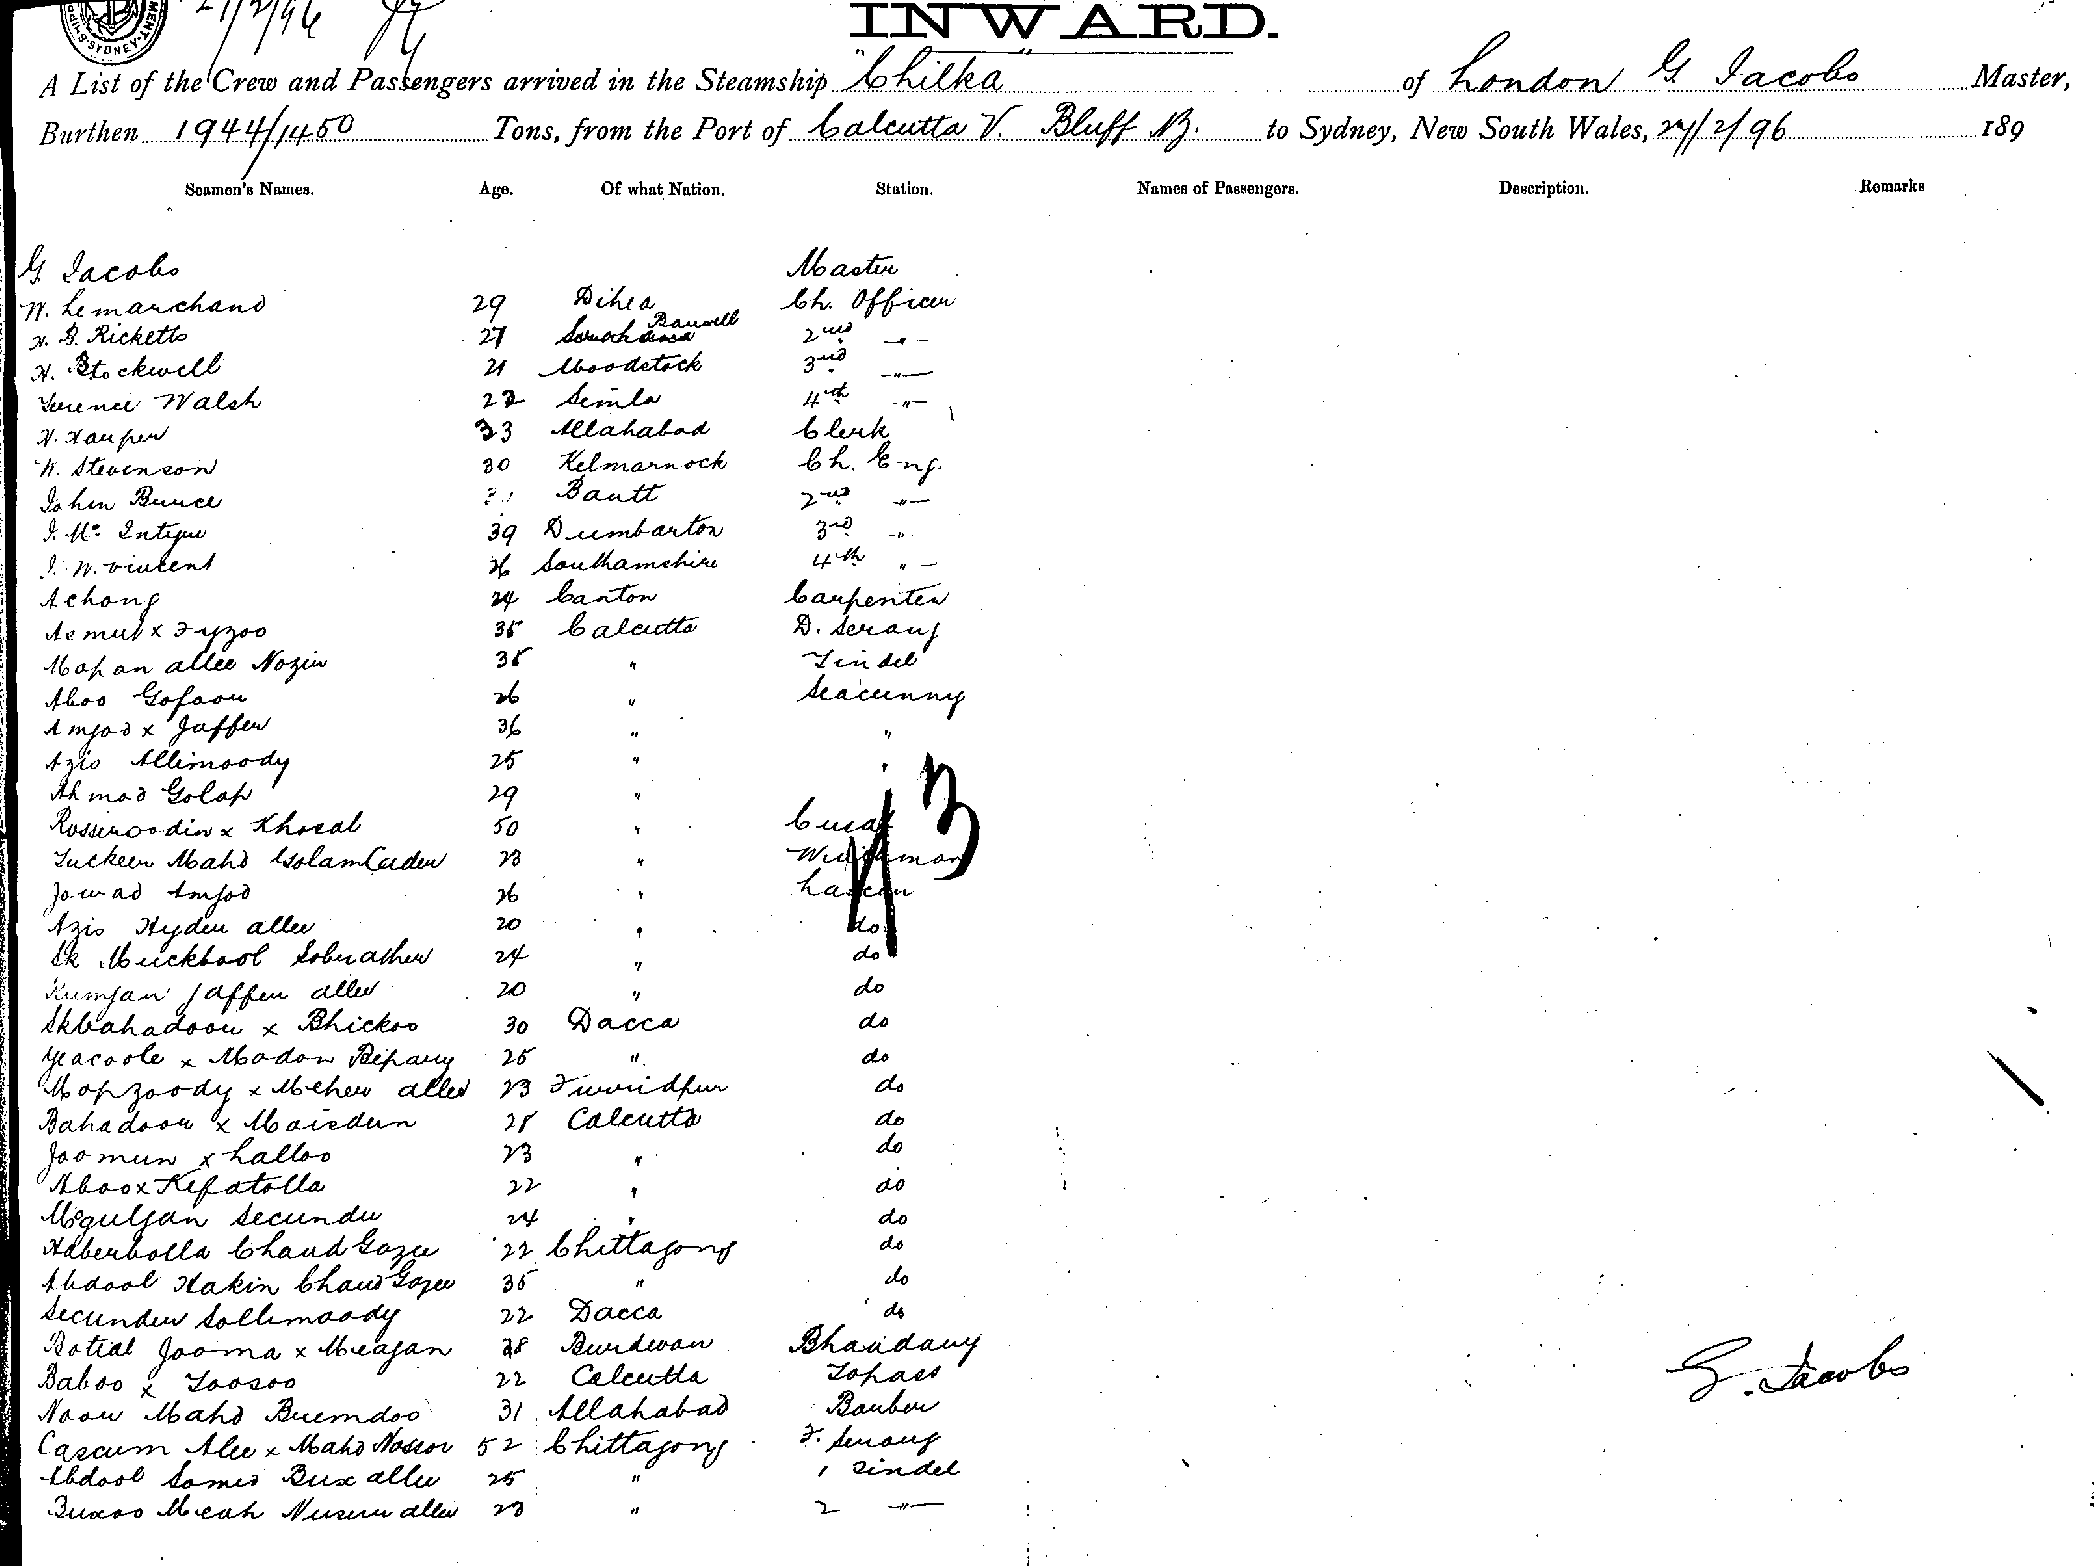 SYDNEY
27/2/96
INWARD.
A List of the Crew and Passengers arrived in the Steamship "Chilka" of London G Jacobs Master,
Burthen 1944/1450 Tons, from the Port of Calcutta V. Bluff NZ. to Sydney, New South Wales, 27/2/96 189
Seamen's Names. Age. Of what Nation. Station. Names of Passengers. Description. Remarks
G Jacobs Master
W. Lemarchand 29 Ch. Officer
H. B. Ricketts 27 2nd "
H. Stockwell 21 Woodstock 3rd "
Terence Walsh 22 Simla 4th "
H. Harper 33 Allahabad Clerk
W. Stevenson 30 Kelmarnock Ch. Eng.
John Bruce Banff 2nd "
J. Mc Intyre 39 Dumbarton 3rd "
J. W. Vincent 26 Southamshire 4th "
Achong 24 Canton Carpenter
Asmut x Fyzoo 35 Calcutta D. Serang
Mofan allee Nozir 35 " Tindel
Aboo Gofoor 26 " Seacunny
Amjod x Jaffer 36 " "
Azis Allimoody 25 " "
Ahmad Golap 29 "
Rosseroodin x Khosal 50 "
Tuckeer Mahd Golam Cader 23 "
Jowad Amjod 26 " Lascar
Azis Hyder allee 20 " do
Sk Muckbool Sobrather 24 " do
Rumjan Jaffer allee 20 " do
Skbahadoor x Bhickoo 30 Dacca do
Yeacoole x Modon Bepary 25 " do
Mofzoody x Meher allee 23 Furridpur do
Bahadoor x Moisdern 28 Calcutta do
Joomun x Lalloo 23 " do
Aboo x Kefatolla 22 " do
Moguljan Secunder 24 " do
Haberbolla Chand Gazee 22 Chittagong do
Abdool Hakin Chand Gazee 35 " do
Secunder Sollimoody 22 Dacca do
Botial Jooma x Meajan 38 Burdwan Bhandary
Baboo x Toosoo 22 Calcutta Topass
Noor Mahd Buemdoo 31 Allahabad Barber
Cascum Alee x Mahd Nassor 52 Chittagong F. Serang
Abdool Somed Bux allee 25 " 1 Tindel
Buxoo Meah Nusur allee 23 " 2 "
G. Jacobs